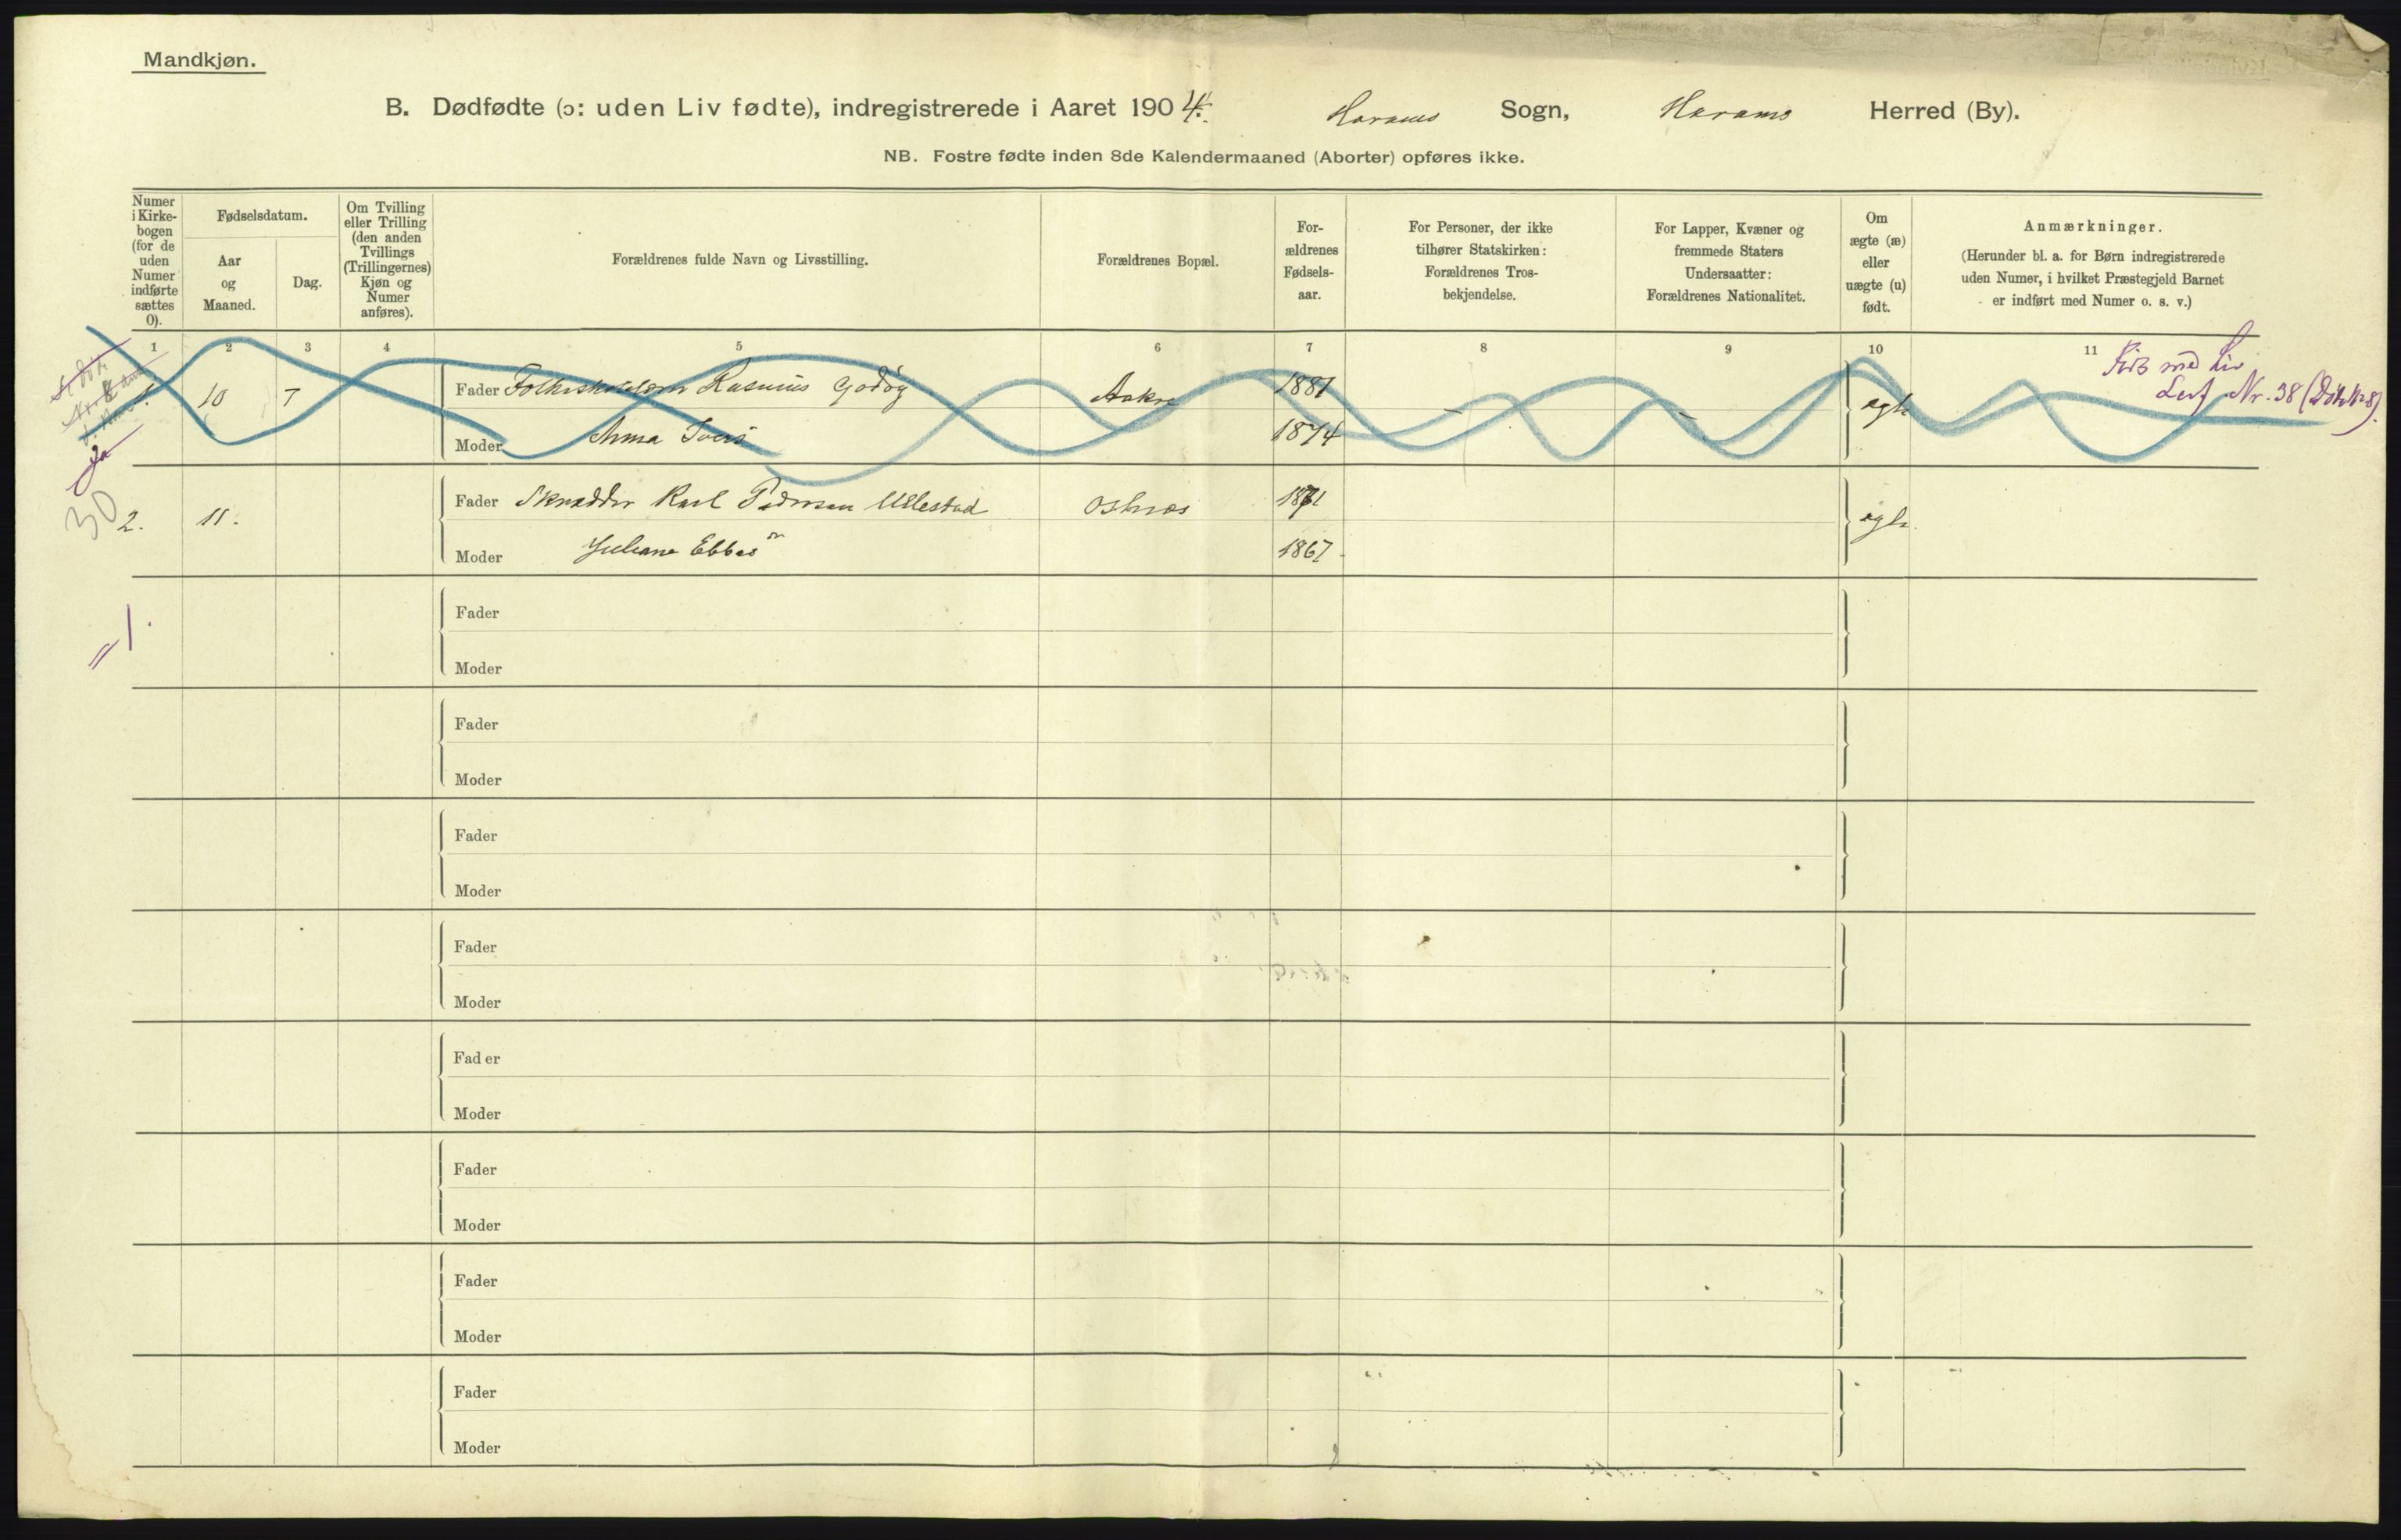 Mandkjøn.
B. Dødfødte (ɔ: uden Liv fødte), indregistrerede i Aaret 1904. Harams Sogn, Harams Herred (By).
NB. Fostre fødte inden 8de Kalendermaaned (Aborter) opføres ikke.
Numer
i Kirke-
bogen
(for de
uden
Numer
indførte
sættes
0).
Fødselsdatum.
Aar
og
Maaned.
Dag.
Om Tvilling
eller Trilling
(den anden
Tvillings
(Trillingernes)
Kjøn og
Numer
anføres).
Forældrenes fulde Navn og Livsstilling.
Forældrenes Bopæl.
For-
ældrenes
Fødsels-
aar.
For Personer, der ikke
tilhører Statskirken:
Forældrenes Tros-
bekjendelse.
For Lapper, Kvæner og
fremmede Staters
Undersaatter:
Forældrenes Nationalitet.
Om
ægte (æ)
eller
uægte (u)
født.
Anmærkninger.
(Herunder bl. a. for Børn indregistrerede
uden Numer, i hvilket Præstegjeld Barnet
er indført med Numer o. s. v.)
1 2 3 4 5 6 7 8 9 10 11
med Liv
Lev. Nr. 38
1. 10 7 Fader Rasmus Godøy Aakre 1881 — — ægte
Moder Anna 1874
ja
30
2. 11. Fader Skrædder Karl Pedersen Ullestad Ostnes 1871 ægte
Moder Juliane Ebbes 1867
1.
Fader
Moder
Fader
Moder
Fader
Moder
Fader
Moder
Fader
Moder
Fader
Moder
Fader
Moder
Fader
Moder